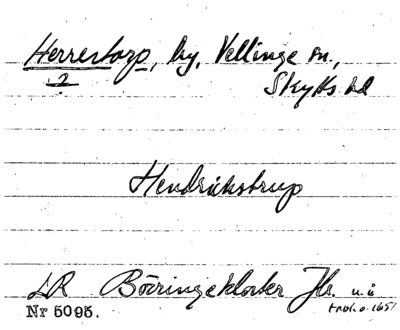 Herrestorp, by, Vellinge sn.,
2
Skytts hd
Hendrickstrup
LR Börringekloster Jb. u. å
Nr 5095. trol. o. 1651